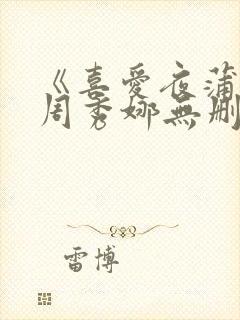 《喜愛夜蒲
周秀娜無刪
雷博